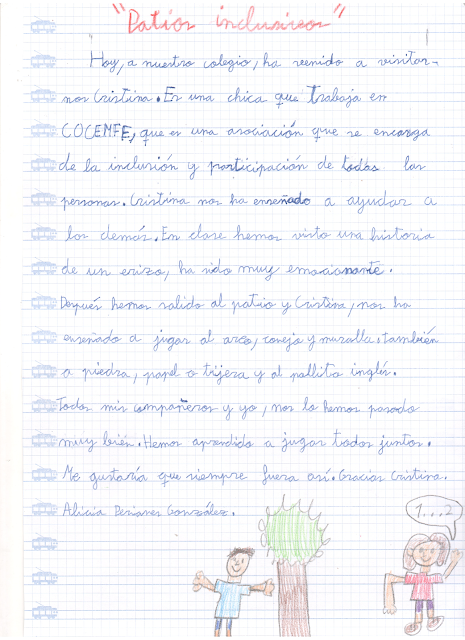 "Patios inclusivos"
Hoy, a nuestro colegio, ha venido a visitar-
nos Cristina. Es una chica que trabaja en
COCEMFE, que es una asociación que se encarga
de la inclusión y participación de todas las
personas. Cristina nos ha enseñado a ayudar a
los demás. En clase hemos visto una historia
de un erizo, ha sido muy emocionante.
Después hemos salido al patio y Cristina, nos ha
enseñado a jugar al arco, conejo y muralla, también
a piedra, papel o tijera y al pollito inglés.
Todos mis compañeros y yo, nos lo hemos pasado
muy bien. Hemos aprendido a jugar todos juntos.
Me gustaría que siempre fuera así. Gracias Cristina.
Alicia González.
1...2